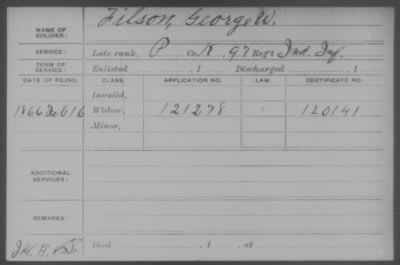 NAME OF SOLDIER: Filson, George W.
SERVICE: Late rank, P Co. K, 97 Reg't Ind. Inf.
TERM OF SERVICE: Enlisted , 1 Discharged , 1
DATE OF FILING. CLASS. APPLICATION NO. LAW. CERTIFICATE NO.
Invalid,
1866 Feb 16 Widow, 121278 120141
Minor,
ADDITIONAL SERVICES:
REMARKS:
Died , 1 , at